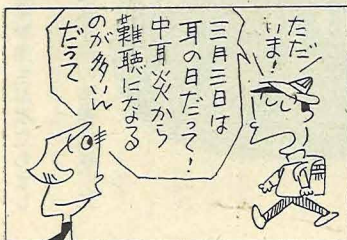 ただ
いま！
三月三日は
耳の日だって！
中耳炎から
難聴になる
のが多いん
だって